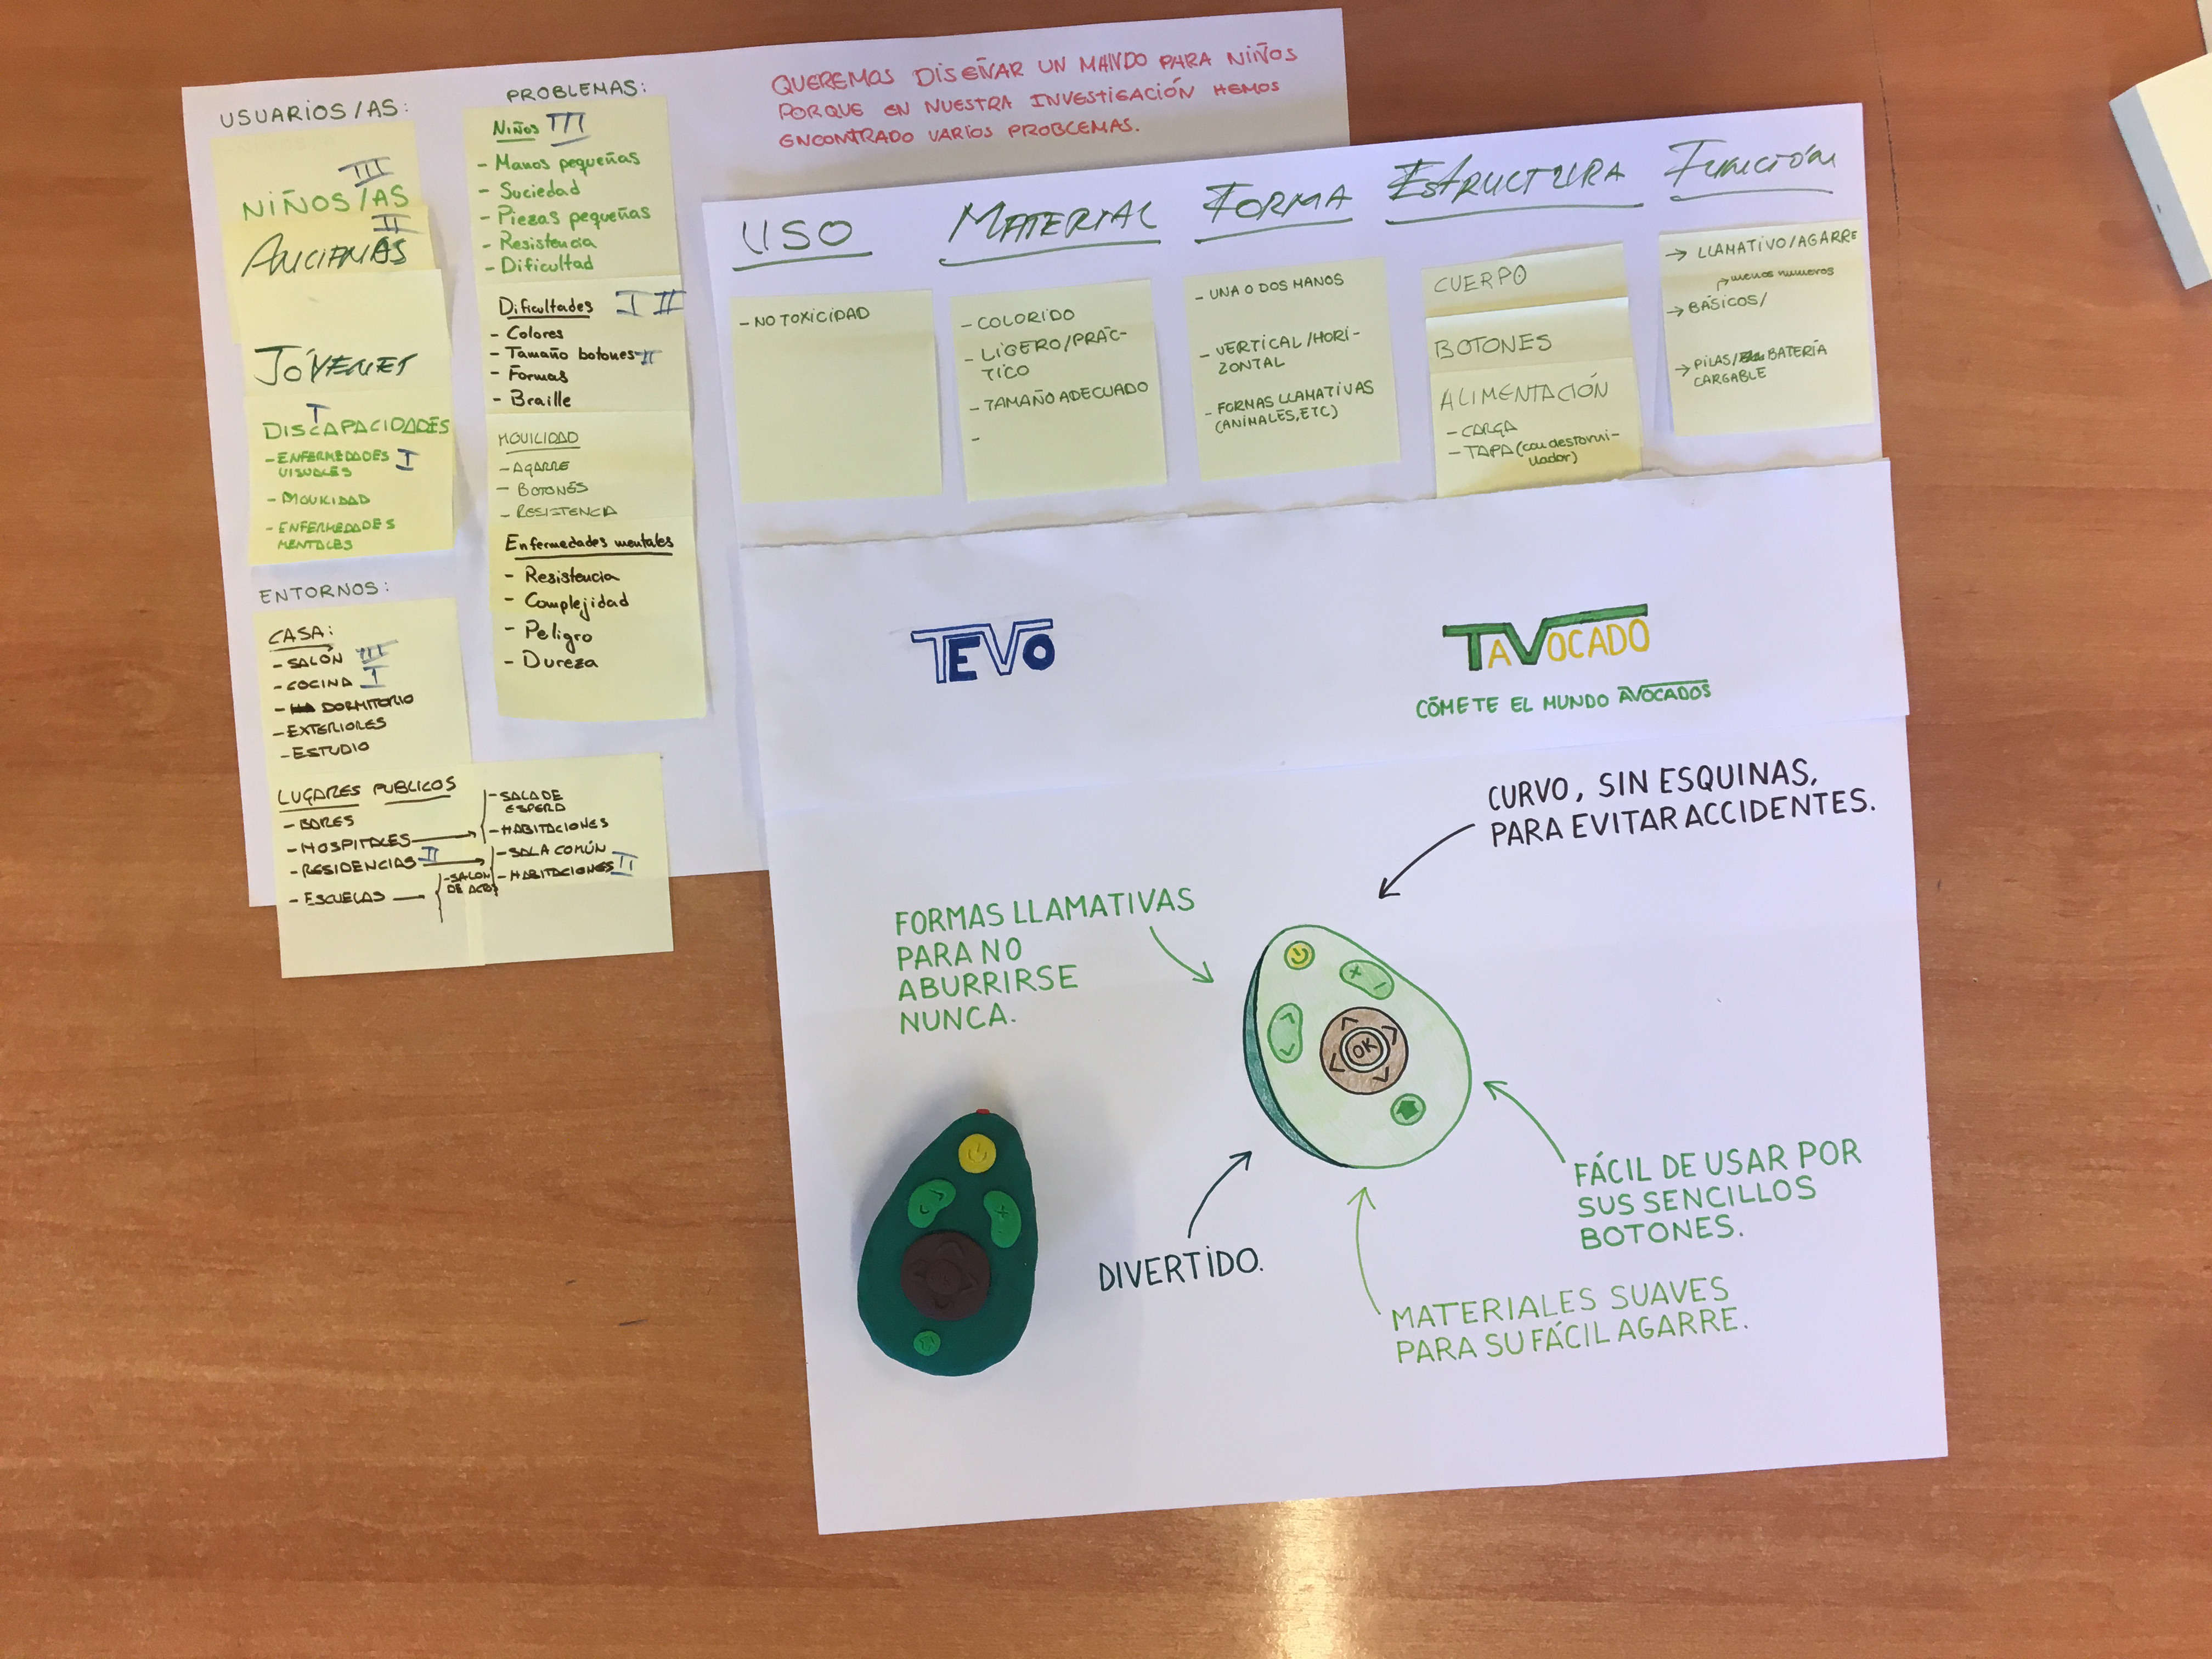 USUARIOS/AS:
III
NIÑOS/AS
II
ANCIANAS
JÓVENES
I
DISCAPACIDADES
- ENFERMEDADES I
VISUALES
- MOVILIDAD
- ENFERMEDADES
MENTALES
ENTORNOS:
CASA:
- SALÓN III
- COCINA I
- DORMITORIO
- EXTERIORES
- ESTUDIO
LUGARES PUBLICOS
- BARES
- HOSPITALES
- SALA DE
ESPERA
- HABITACIONES
- RESIDENCIAS II
- SALA COMÚN
- HABITACIONES II
- ESCUELAS
- SALON
DE ACTOS
PROBLEMAS:
Niños III
- Manos pequeñas
- Suciedad
- Piezas pequeñas
- Resistencia
- Dificultad
Dificultades I II
- Colores
- Tamaño botones II
- Formas
- Braille
MOVILIDAD
- AGARRE
- BOTONES
- RESISTENCIA
Enfermedades mentales
- Resistencia
- Complejidad
- Peligro
- Dureza
QUEREMOS DISEÑAR UN MANDO PARA NIÑOS
PORQUE EN NUESTRA INVESTIGACIÓN HEMOS
ENCONTRADO VARIOS PROBLEMAS.
USO
- NO TOXICIDAD
MATERIAL
- COLORIDO
- LIGERO/PRÁC-
TICO
- TAMAÑO ADECUADO
-
FORMA
- UNA O DOS MANOS
- VERTICAL/HORI-
ZONTAL
- FORMAS LLAMATIVAS
(ANIMALES, ETC)
ESTRUCTURA
CUERPO
BOTONES
ALIMENTACIÓN
- CARGA
- TAPA (con destorni-
llador)
FUNCIÓN
→ LLAMATIVO/AGARRE
menos numeros
→ BÁSICOS/
→ PILAS/ BATERÍA
CARGABLE
TEVO
TAVOCADO
CÓMETE EL MUNDO AVOCADOS
CURVO, SIN ESQUINAS,
PARA EVITAR ACCIDENTES.
FORMAS LLAMATIVAS
PARA NO
ABURRIRSE
NUNCA.
+
-
OK
FÁCIL DE USAR POR
SUS SENCILLOS
BOTONES.
DIVERTIDO.
MATERIALES SUAVES
PARA SU FÁCIL AGARRE.